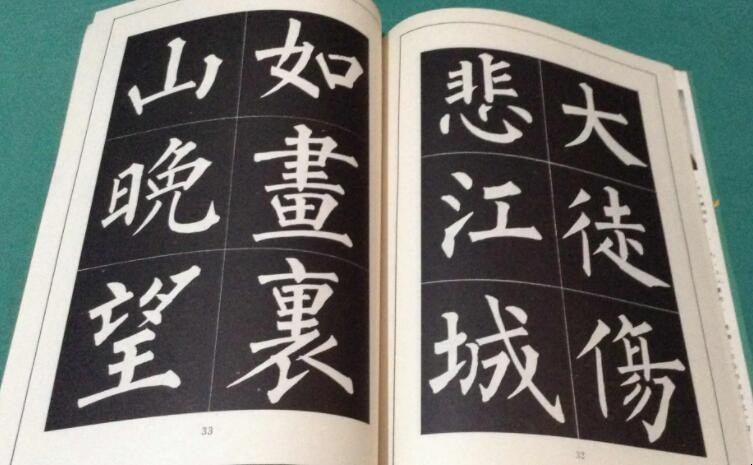 大徒傷
悲江城
32
如畫裏
山晚望
33